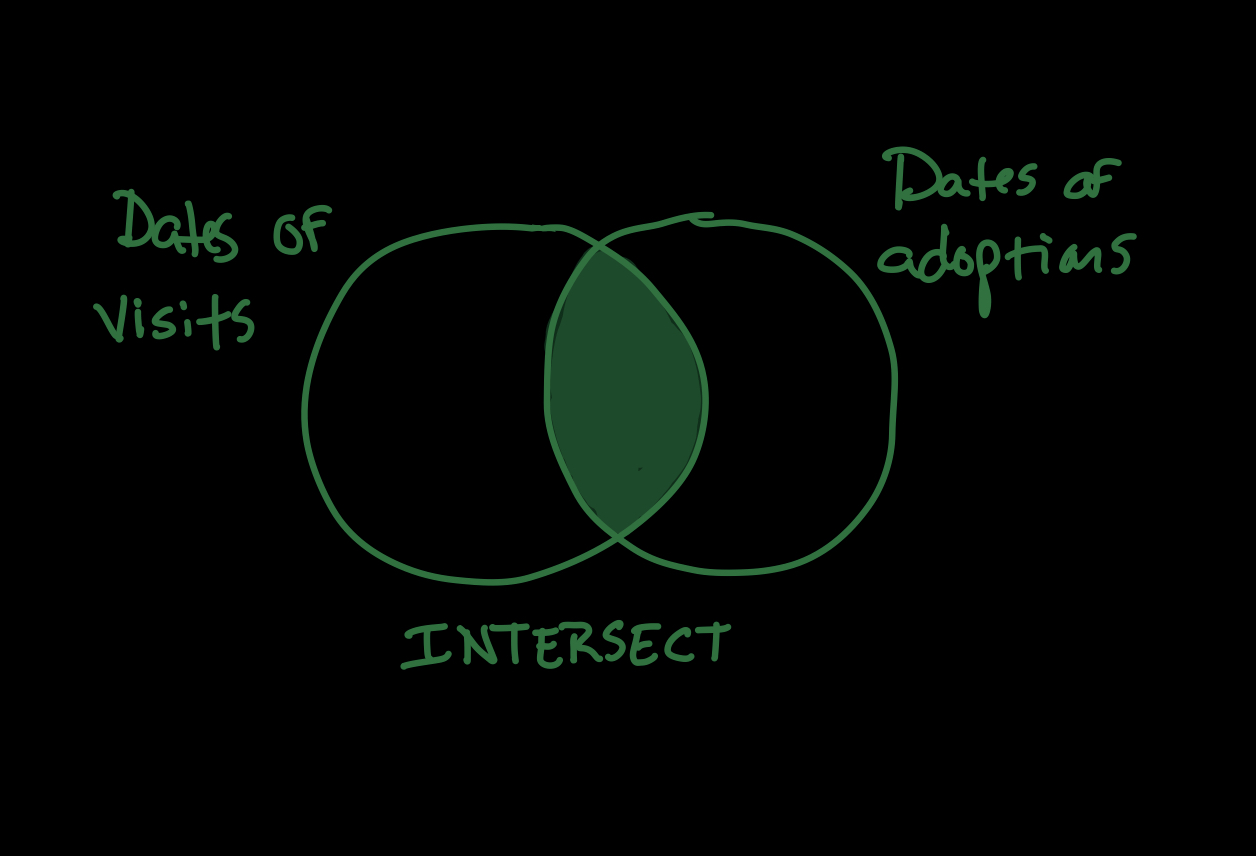 Dates of
visits
Dates of
adoptions
INTERSECT